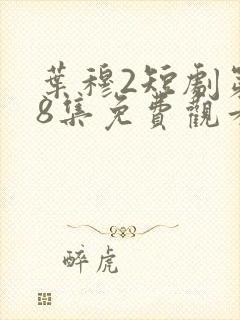 葉穆2短劇第
8集免費觀看
醉虎